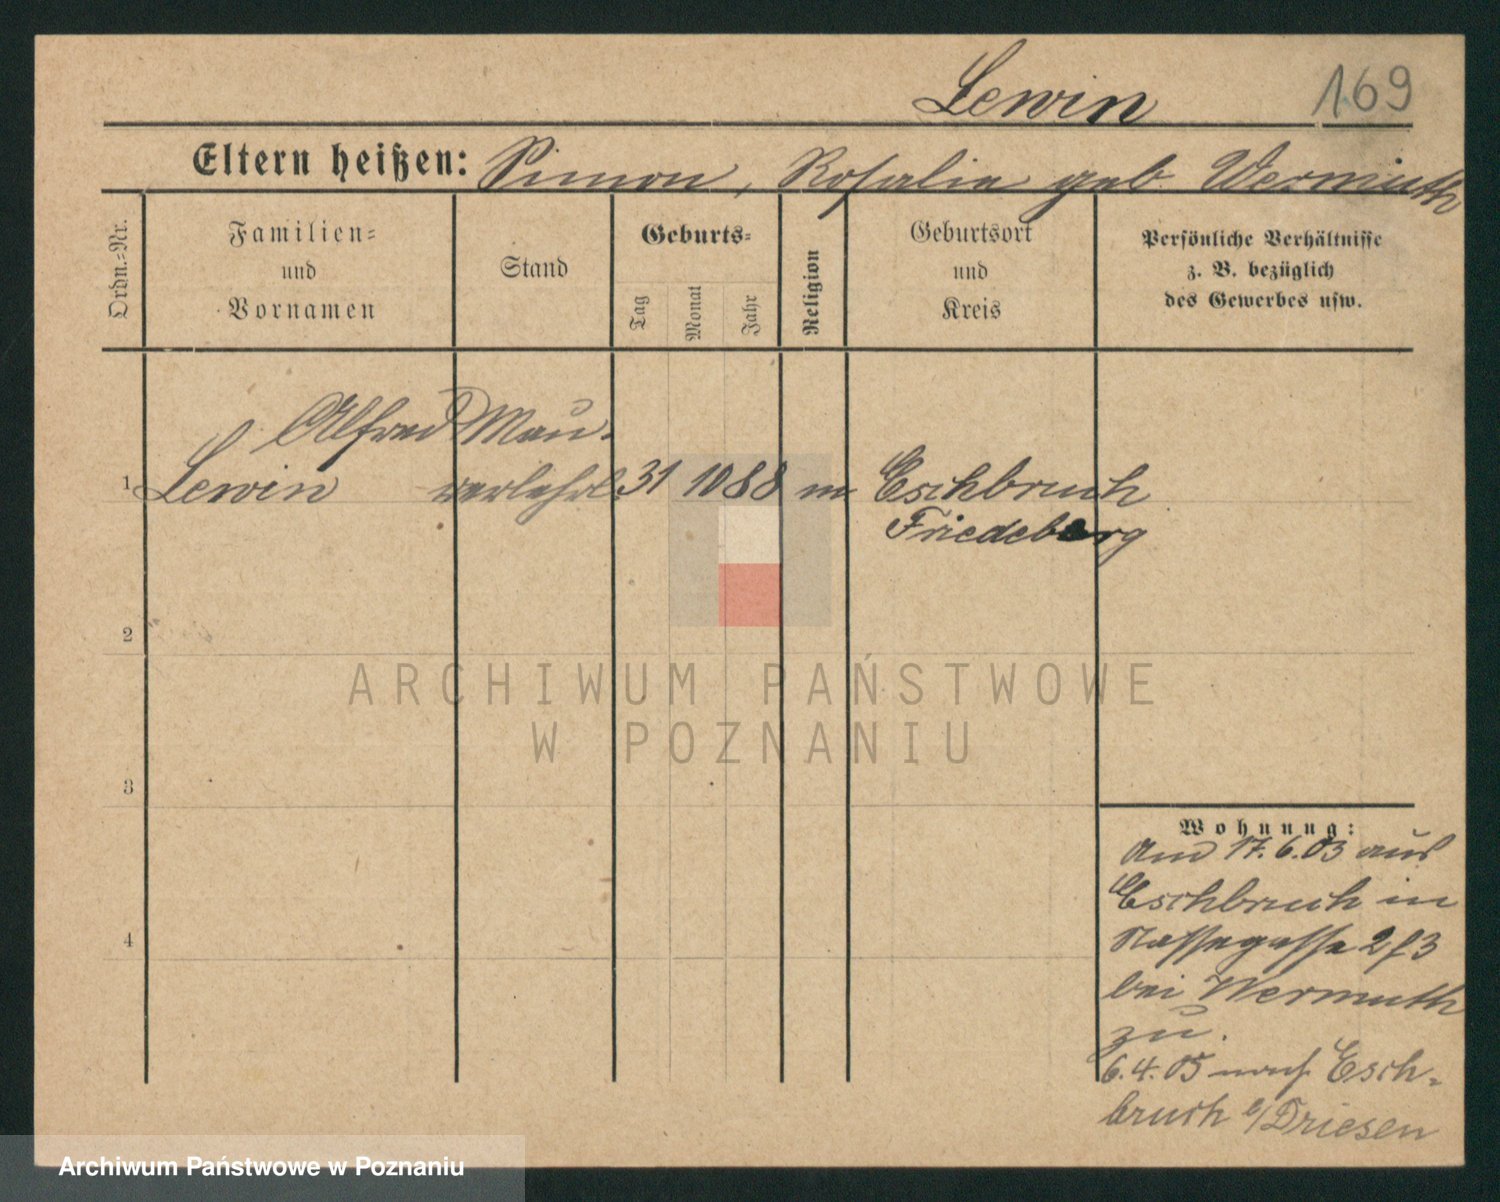 Lewin 169
Eltern heißen: Simon, Rosalie geb Wermuth
Ordn.=Nr.
Familien=
und
Vornamen
Stand
Geburts=
Tag
Monat
Jahr
Religion
Geburtsort
und
Kreis
Persönliche Verhältnisse
z. B. bezüglich
des Gewerbes usw.
Alfred Mau-
1 Lewin rerlehrl. 31 10 88 m Eschbruch
Friedeberg
2
3
4
ARCHIWUM PAŃSTWOWE
W POZNANIU
Wohnung:
Am 17.6.03 aus
Eschbruch in
Nassegasse 2/3
bei Wermuth
zu.
6.4.05 nach Esch-
bruch b/Driesen
Archiwum Państwowe w Poznaniu